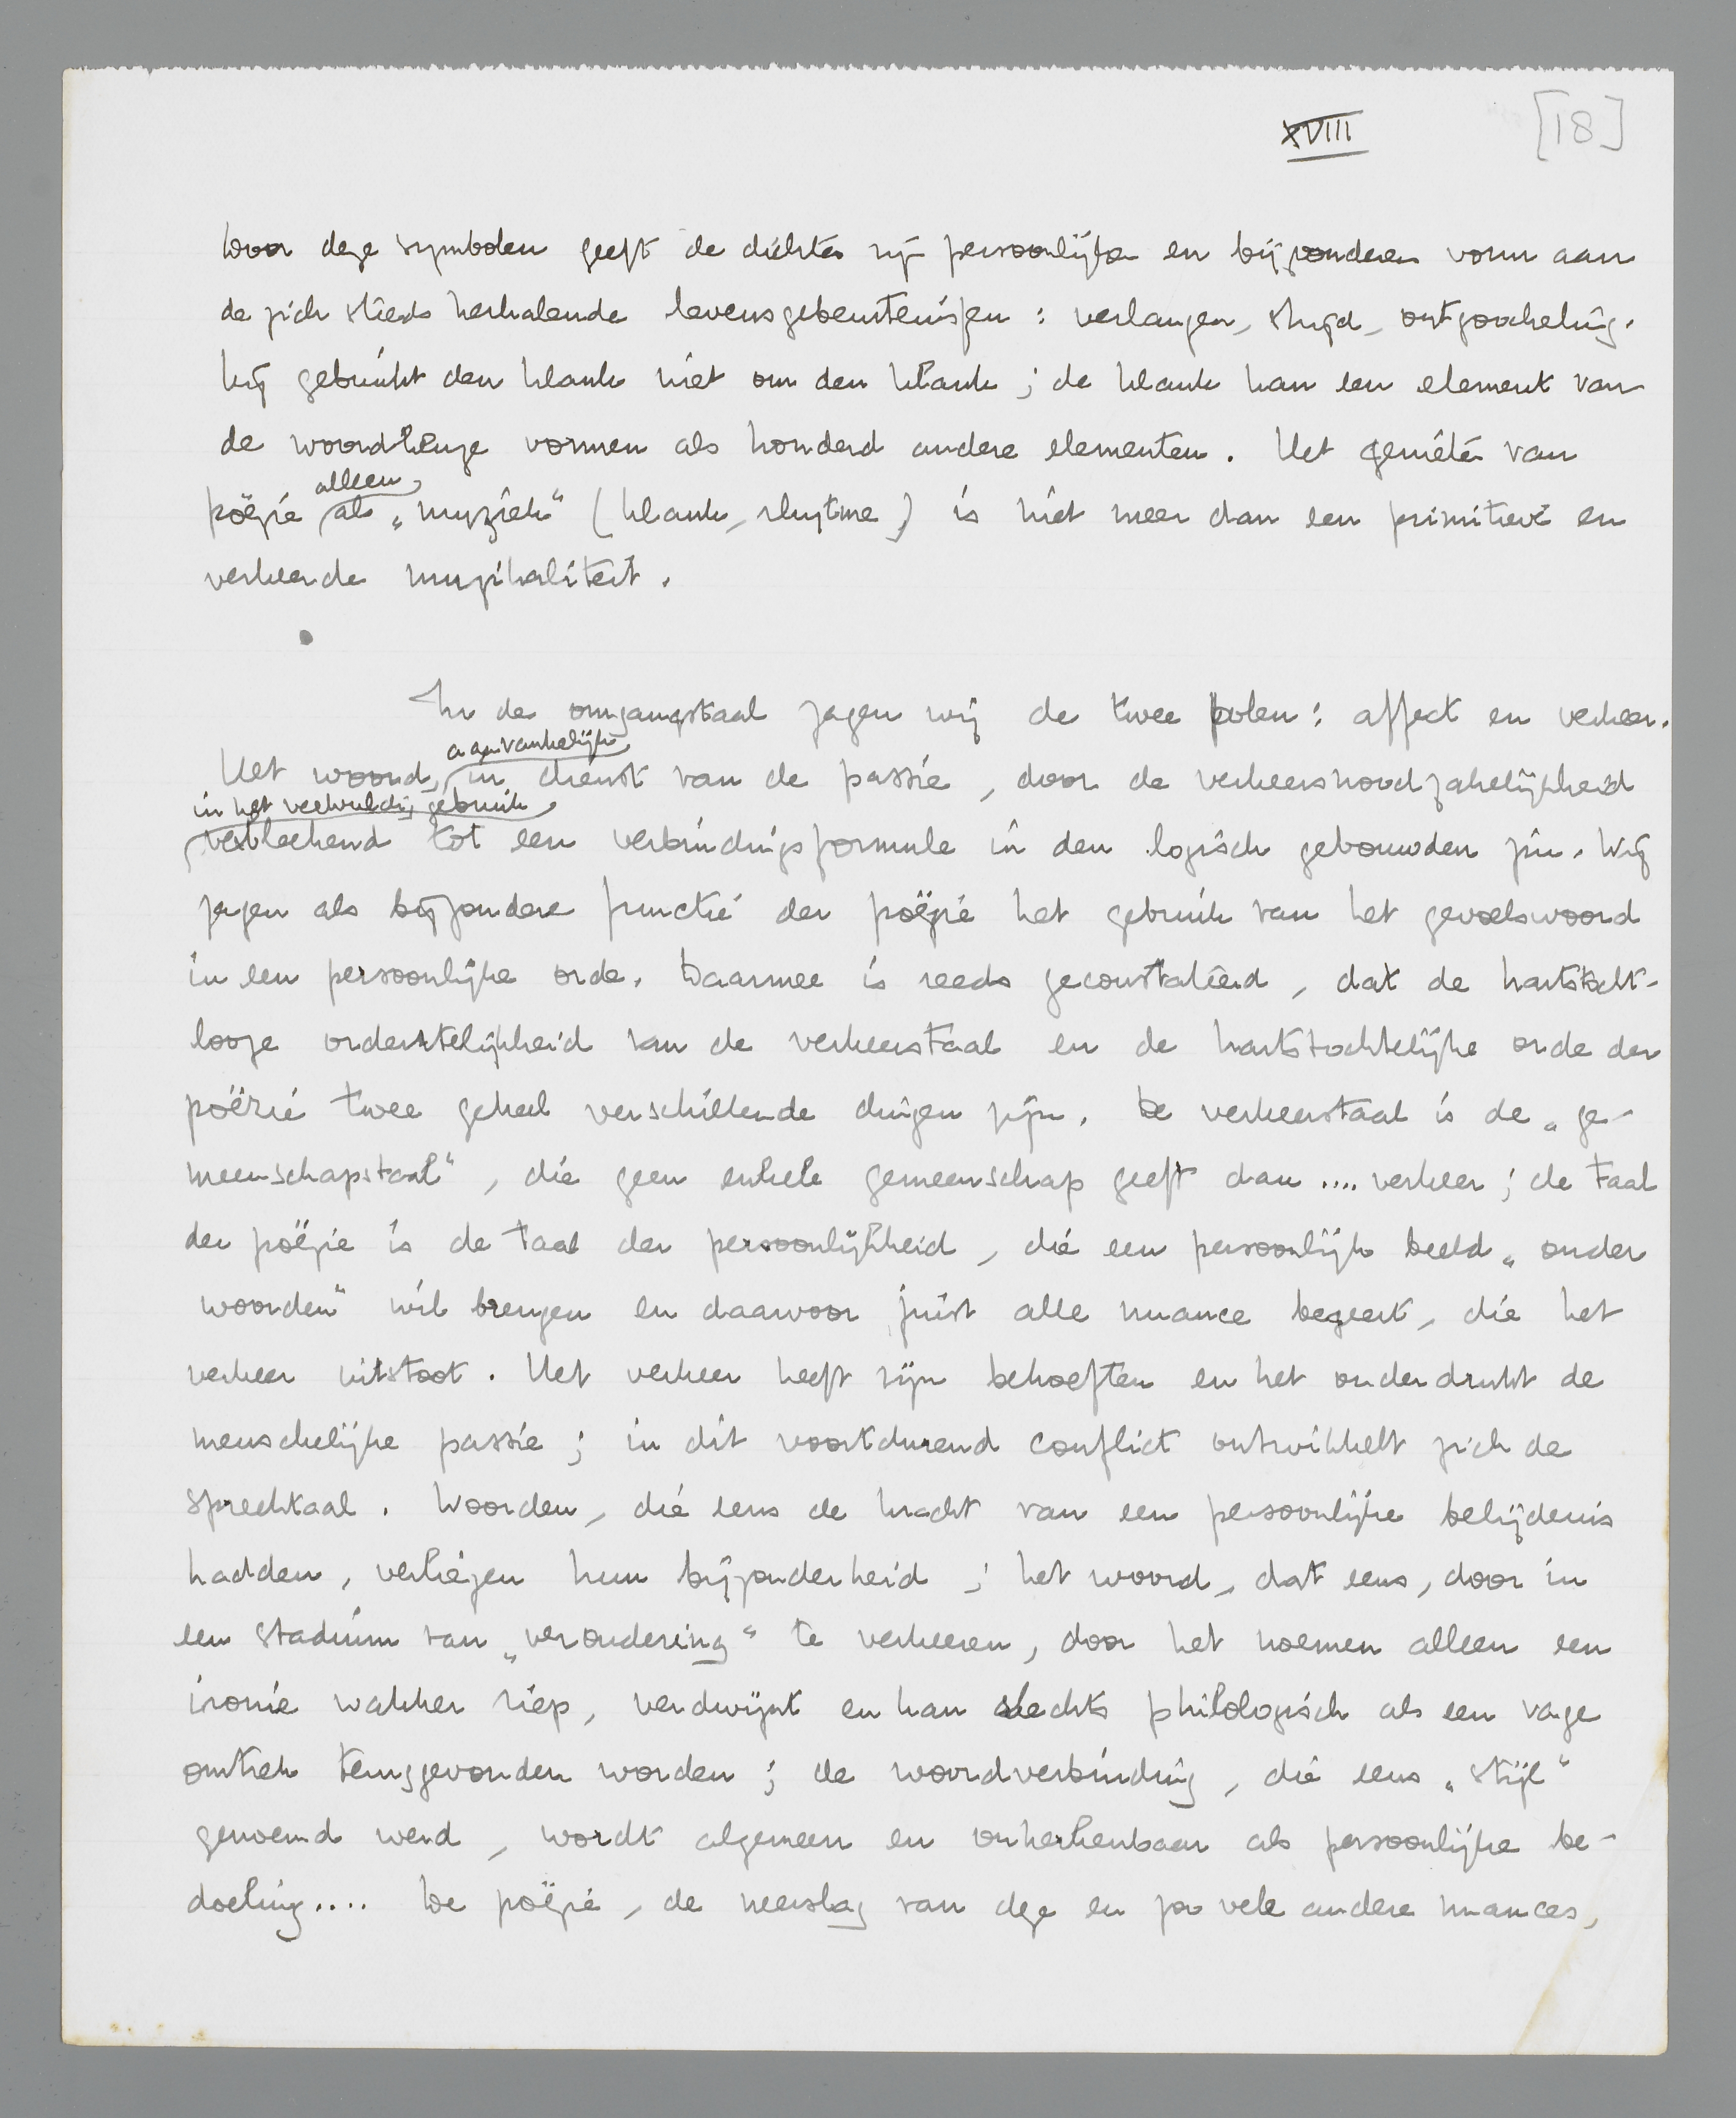 XVIII [18]
Door deze symbolen geeft de dichter zijn persoonlijken en bijzonderen vorm aan
de zich steeds herhalende levensgebeurtenissen: verlangen, strijd, ontgoocheling.
Hij gebruikt den klank niet om den klank; de klank kan een element van
de woordkeuze vormen als honderd andere elementen. Het genieten van
alleen
poëzie als „muziek“ (klank, rhytme) is niet meer dan een primitieve en
verkeerde muzikaliteit.
In de omgangstaal zagen wij de twee polen: affect en verkeer.
aanvankelijk
Het woord, in dienst van de passie, door de verkeersnoodzakelijkheid
in het veelvuldig gebruik
verbleekend tot een verbindingsformule in den logisch gebouwden zin. Wij
zagen als bijzondere functie der poëzie het gebruik van het gevoelswoord
in een persoonlijke orde. Daarmee is reeds geconstateerd, dat de hartstocht-
looze ordentelijkheid van de verkeerstaal en de hartstochtelijke orde der
poëzie twee geheel verschillende dingen zijn. De verkeerstaal is de „ge-
meenschapstaal“, die geen enkele gemeenschap geeft dan .... verkeer; de taal
der poëzie is de taal der persoonlijkheid, die een persoonlijk beeld „onder
woorden“ wil brengen en daarvoor juist alle nuance begeert, die het
verkeer uitstoot. Het verkeer heeft zijn behoeften en het onderdrukt de
menschelijke passie; in dit voortdurend conflict ontwikkelt zich de
spreektaal. Woorden, die eens de kracht van een persoonlijke belijdenis
hadden, verliezen hun bijzonderheid; het woord, dat eens, door in
een stadium van „veroudering“ te verkeeren, door het noemen alleen een
ironie wakker riep, verdwijnt en kan slechts philologisch als een vage
omtrek teruggevonden worden; de woordverbinding, die eens „stijl“
genoemd werd, wordt algemeen en onherkenbaar als persoonlijke be-
doeling.... De poëzie, de neerslag van deze en zoo vele andere nuances,